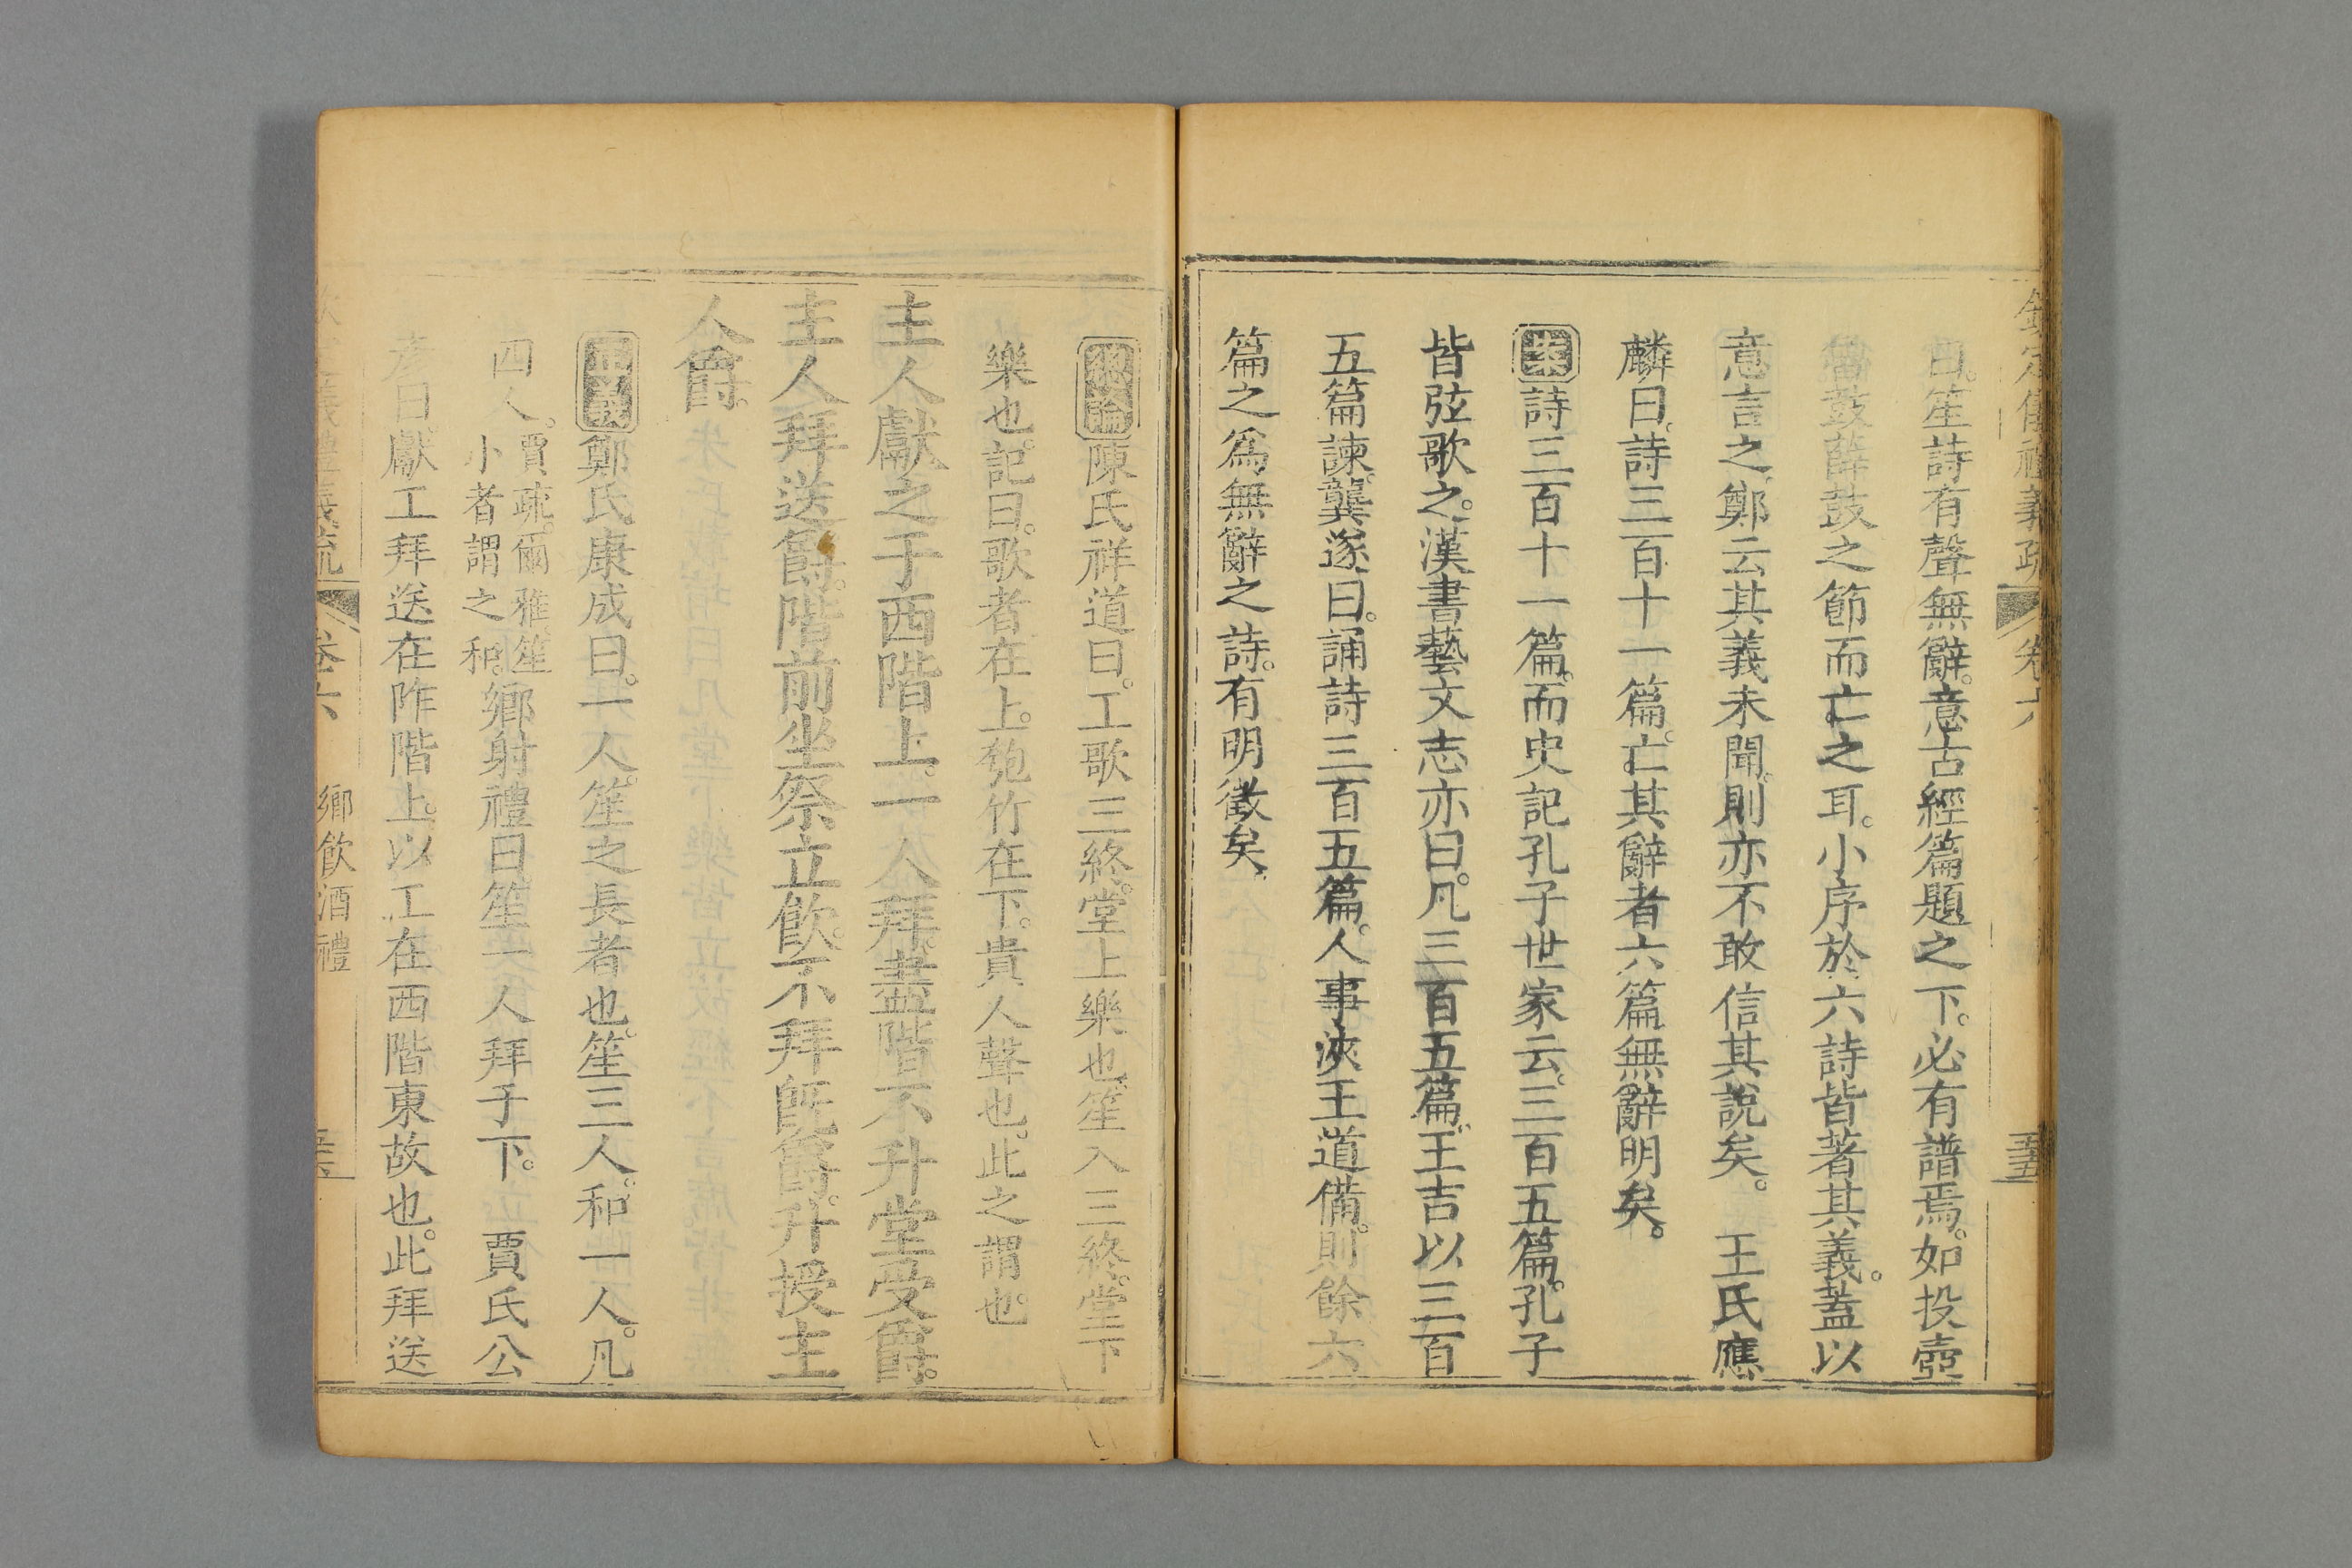 欽定儀禮義疏 卷六
曰。笙詩有聲無辭。意古經篇題之下。必有譜焉。如投壺
魯鼓薛鼓之節而亡之耳。小序於六詩皆著其義。蓋以
意言之。鄭云其義未聞。則亦不敢信其說矣。 王氏應
麟曰。詩三百十一篇。亡其辭者六篇無辭明矣。
案詩三百十一篇。而史記孔子世家云。三百五篇。孔子
皆弦歌之。漢書藝文志亦曰。凡三百五篇。王吉以三百
五篇諫。龔遂曰。誦詩三百五篇。人事浹王道備。則餘六
篇之爲無辭之詩。有明徵矣。
總論陳氏祥道曰。工歌三終。堂上樂也。笙入三終。堂下
樂也。記曰。歌者在上。匏竹在下。貴人聲也。此之謂也。
主人獻之于西階上。一人拜。盡階不升堂受爵。
主人拜送爵。階前坐祭立飮。不拜旣爵。升授主
人爵。
正義鄭氏康成曰。一人。笙之長者也。笙三人。和一人。凡
四人。賈疏。爾雅。笙小者謂之和。鄉射禮曰。笙一人拜于下。 賈氏公
彥曰。獻工拜送在阼階上。以工在西階東故也。此拜送
義禮義疏 卷六 鄉飮酒禮